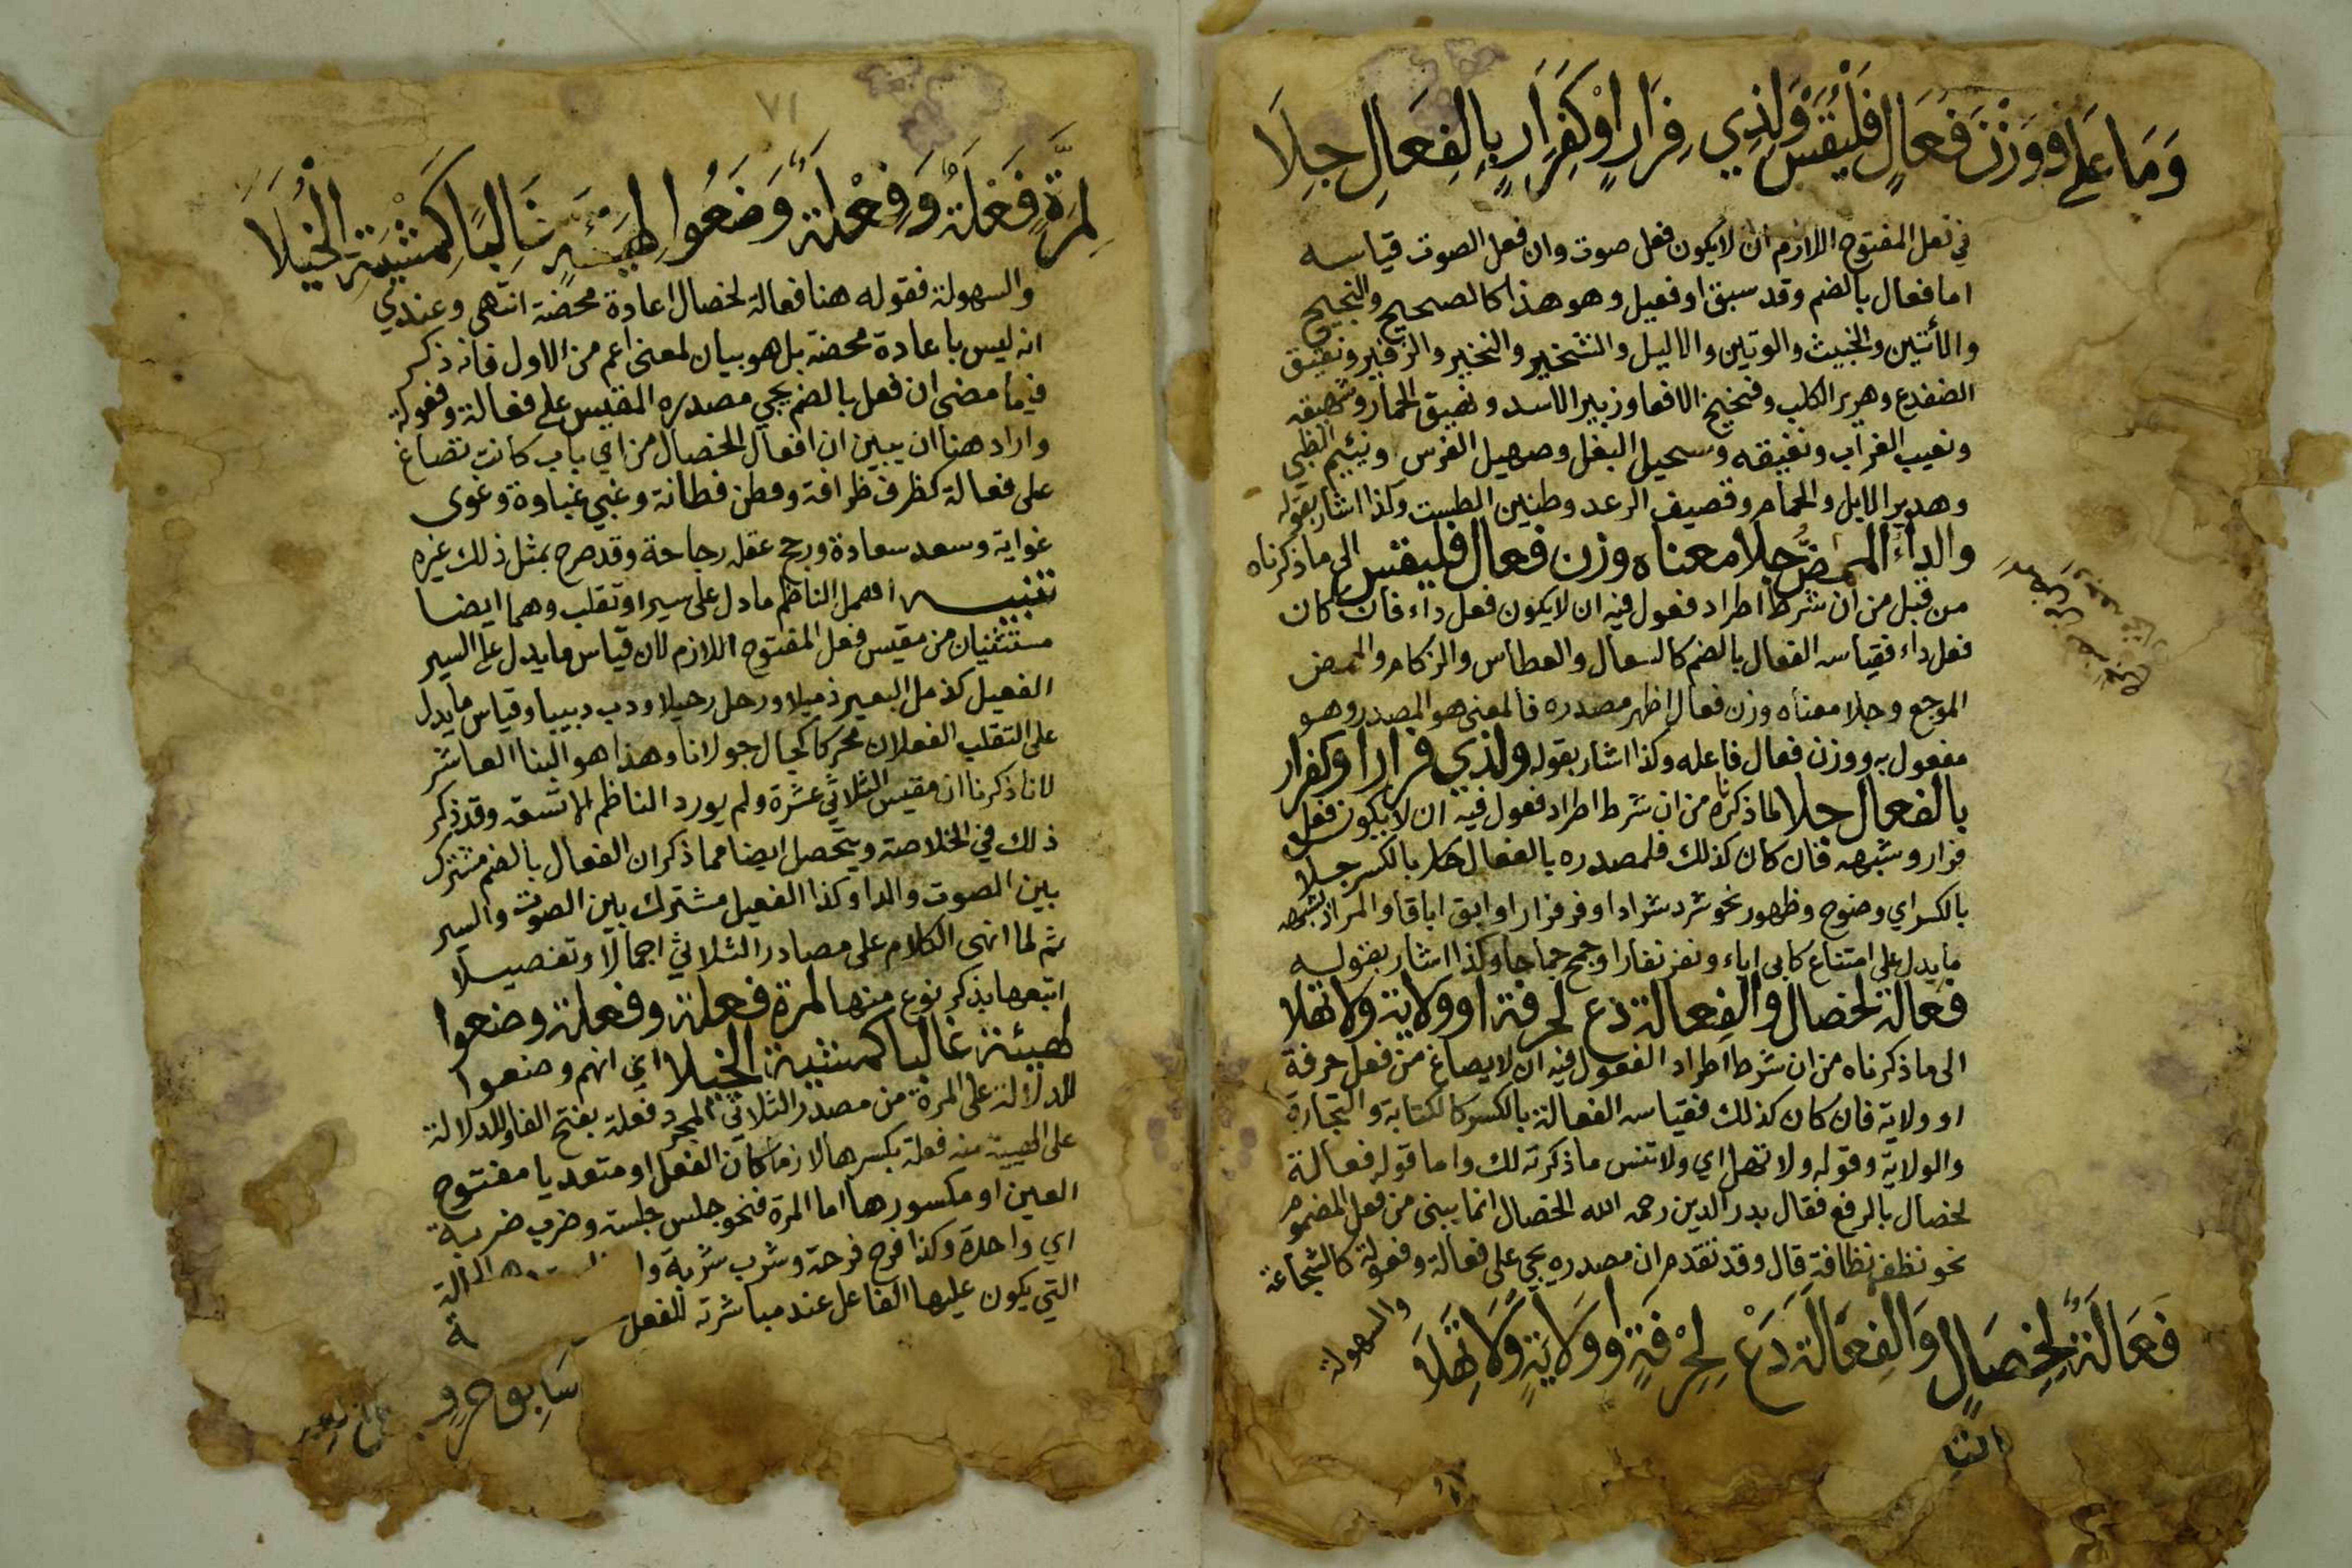 وَمَا عَلَى وَزْنِ فُعَالٍ فَلْيُقَسْ وَلِذِي فِرَارٍ اَوْ كَفِرَارٍ بِالْفِعَالِ جِلَا
في فعل المفتوح اللازم ان لا يكون فعل صوت وان فعل الصوت قياسه
اما فعال بالضم وقد سبق او فعيل وهو هذا كالصحيح والنجيح
والانين والخبيث والوتين والاليل والشخير والنخير والزفير ونقيق
الضفدع وهرير الكلب وفحيح الافعا وزبير الاسد ونهيق الحمار وشهيقه
ونعيب الغراب ونغيقه وسحيل البغل وصهيل الفرس ونئيم الظبي
وهدير الابل والحمام وقصيف الرعد وطنين الطست وكذا اشار بقوله
والداء الممض جلا معناه وزن فعال فليقس الى ما ذكرناه
من قبل من ان شرط اطراد فعول فيه ان لا يكون فعل داء فان كان
فعل داء فقياسه الفعال بالضم كالسعال والعطاس والزكام والممض
الموجع وجلا معناه وزن فعال اظهر مصدره فالمعنى هو المصدر وهو
مفعول به ووزن فعال فاعله وكذا اشار بقوله ولذي فرار او كفرار
بالفعال جلا لما ذكرناه من ان شرط اطراد فعول فيه ان لا يكون فعل
فرار وشبهه فان كان كذلك فلمصدره بالفعال بالكسر جلا
بالكسر اي وضوح وظهور نحو شرد شرادا وفر فرارا وابق اباقا والمراد بشبهه
ما يدل على امتناع كابى اباء ونفر نفارا وجمح جماحا وكذا اشار بقوله
فعالة لخصال والفعالة دع لحرفة او ولاية ولا تهلا
الى ما ذكرناه من ان شرط اطراد الفعول فيه ان لا يصاغ من فعل حرفة
او ولاية فان كان كذلك فقياسه الفعالة بالكسر كالكتابة والتجارة
والولاية وقوله ولا تهل اي ولا تنس ما ذكرته لك واما قوله فعالة
لخصال بالرفع فقال بدر الدين رحمه الله الخصال انما يبنى من فعل المضموم
نحو نظف نظافة قال وقد تقدم ان مصدره يجي على فعالة وفعولة كالشجاعة
والسهولة
فَعَالَةٌ لِخِصَالٍ وَالْفِعَالَةَ دَعْ لِحِرْفَةٍ اَوْ وِلَايَةٍ وَلَا تَهِلَا
٧١
لِمَرَّةٍ فَعْلَةٌ وَفِعْلَةٌ وَضَعُوا لِهَيْئَةٍ غَالِبًا كَمِشْيَةِ الْخُيَلَا
والسهولة فقوله هنا فعالة لخصال اعادة محضة انتهى وعندي
انه ليس باعادة محضة بل هو بيان لمعنى اعم من الاول فانه ذكر
فيما مضى ان فعل بالضم يجي مصدره المقيس على فعالة وفعولة
واراد هنا ان يبين ان افعال الخصال من اي باب كانت تصاغ
على فعالة كظرف ظرافة وفطن فطانة وغبي غباوة وغوى
غواية وسعد سعادة ورجح عقله رجاحة وقد صرح بمثل ذلك غيره
تنبيه اهمل الناظم ما دل على سير او تقلب وهما ايضا
مستثنيان من مقيس فعل المفتوح اللازم لان قياس ما يدل على السير
الفعيل كذمل البعير ذميلا ورحل رحيلا ودب دبيبا وقياس ما يدل
على التقلب الفعلان محركا كجال جولانا وهذا هو البنا العاشر
لانا ذكرنا ان مقيس الثلاثي عشرة ولم يورد الناظم الا تسعة وقد ذكر
ذلك في الخلاصة ويتحصل ايضا مما ذكر ان الفعال بالضم مشترك
بين الصوت والدا وكذا الفعيل مشترك بين الصوت والسير
ثم لما انهى الكلام على مصادر الثلاثي اجمالا وتفصيلا
اتبعها بذكر نوع منها لمرة فعلة وفعلة وضعوا
لهيئة غالبا كمشية الخيلا اي انهم وضعوا
للدلالة على المرة من مصدر الثلاثي المجرد فعلة بفتح الفا وللدلالة
على الهيية منه فعلة بكسرها لازما كان الفعل او متعديا مفتوح
العين او مكسورها اما المرة فنحو جلس جلسة وضرب ضربة
اي واحدة وكذا فرح فرحة وشرب شربة
التي يكون عليها الفاعل عند مباشرته للفعل